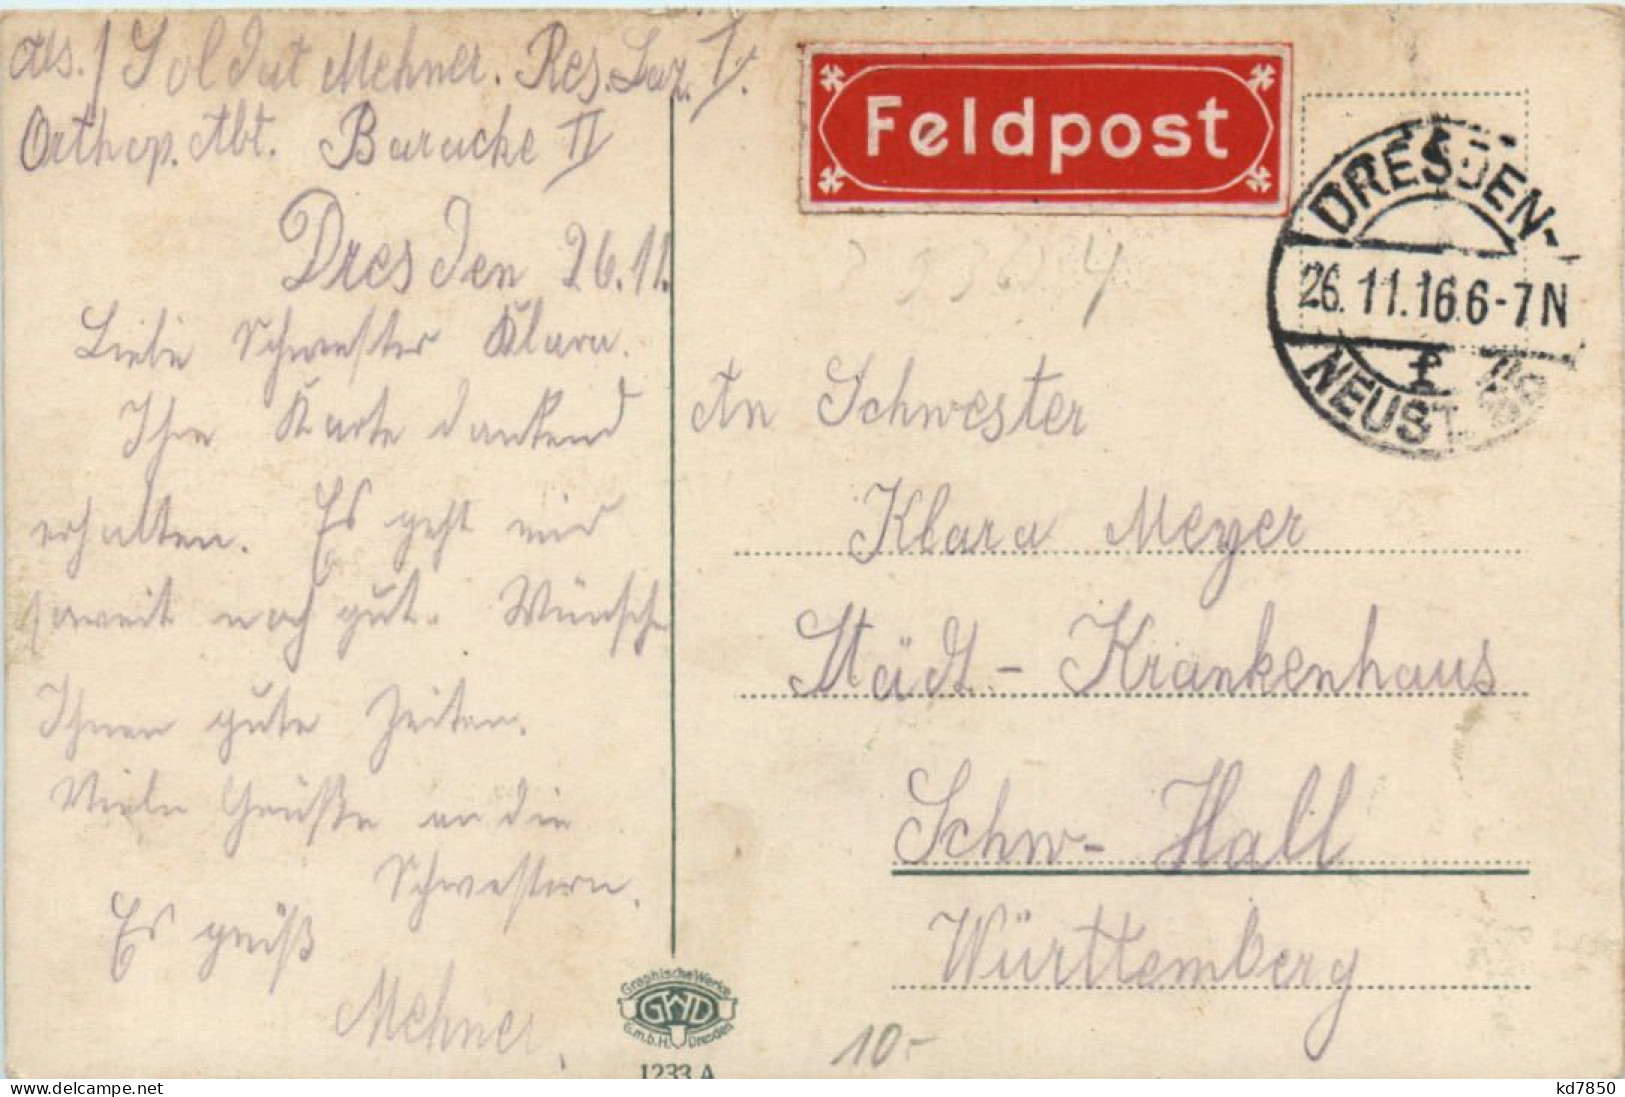 Abs. / Soldat Mehner. Res. Laz. I.
Orthop. Abt. Baracke II
Dresden 26.11.
Liebe Schwester Klara.
Ihre Karte dankend
erhalten. Es geht mir
soweit noch gut. Wünsche
Ihnen gute Zeiten.
Viele Grüße an die
Schwestern.
Es grüß
Mehner.
Feldpost
DRESDEN-
26.11.16.6-7N
f
NEUST.
An Schwester
Klara Meyer
Städt- Krankenhaus
Schw- Hall
Württemberg
10.-
Graphische Werke
GWD
G.m.b.H. Dresden
1233 A
kd7850